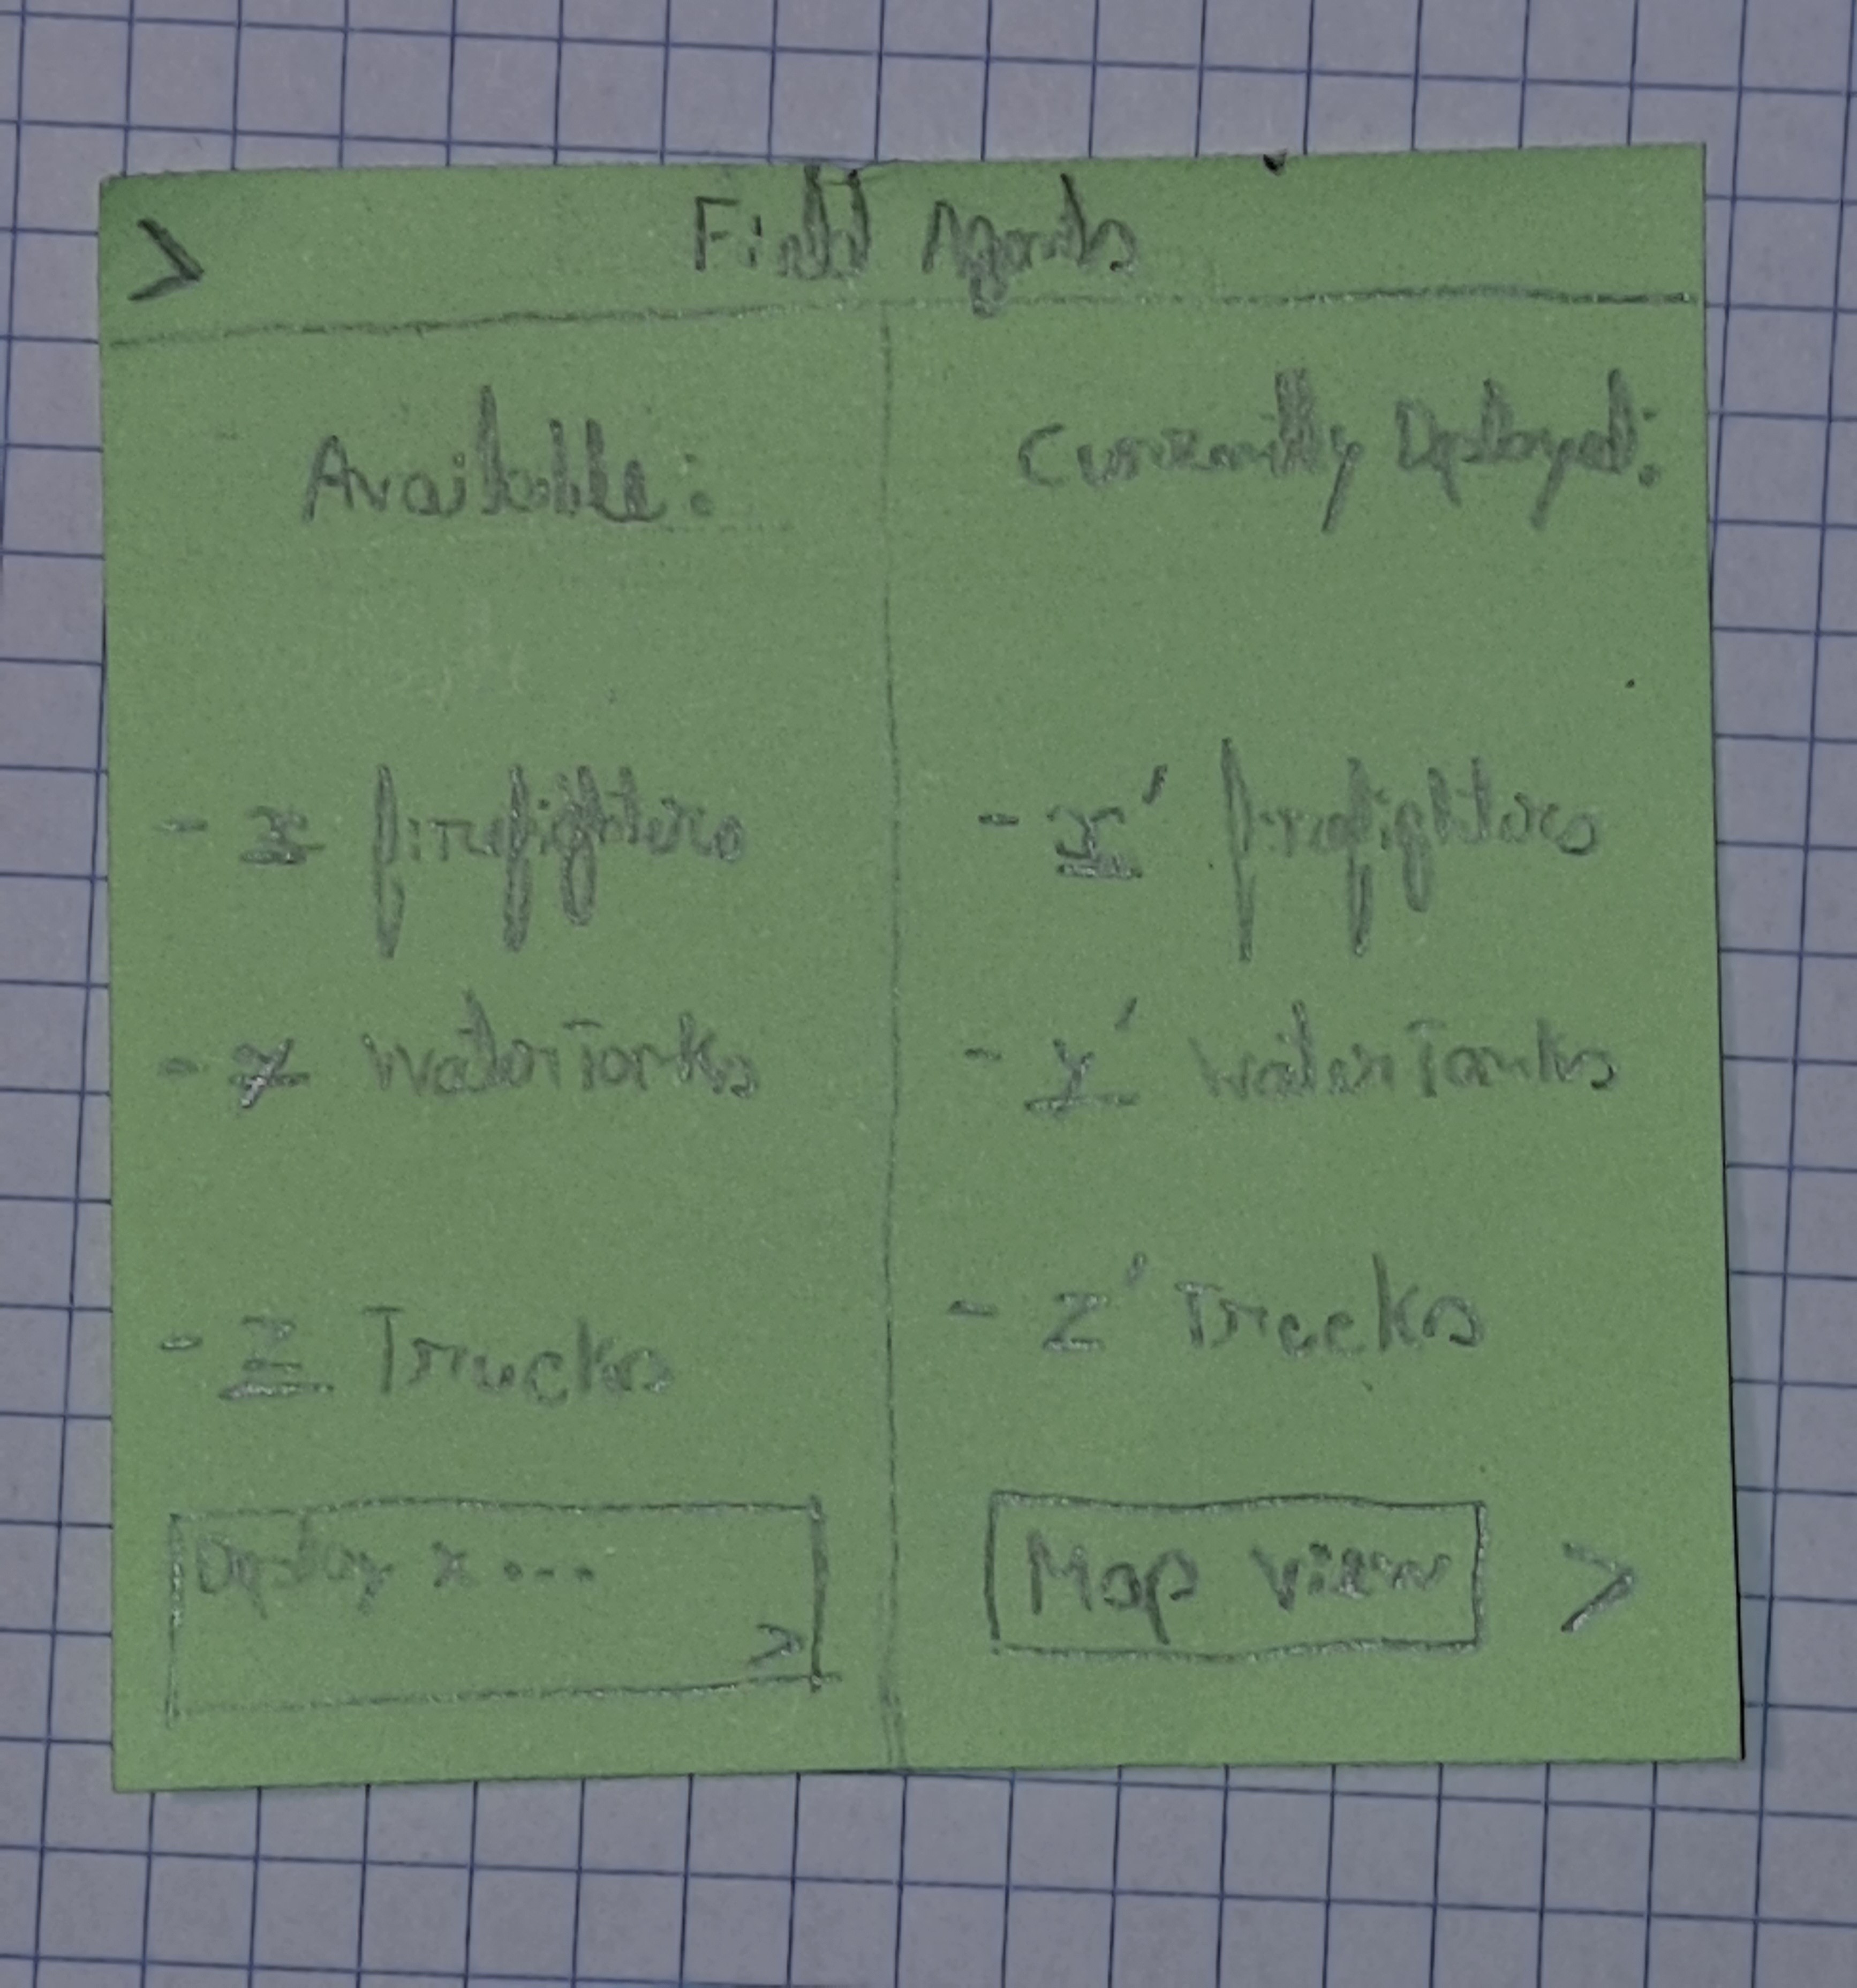 > Field Agents
Available:
- x firefighters
- y waterTanks
- z Trucks
Deploy x ...
>
Currently Deployed:
- x' firefighters
- y' waterTanks
- z' Trucks
Map view >